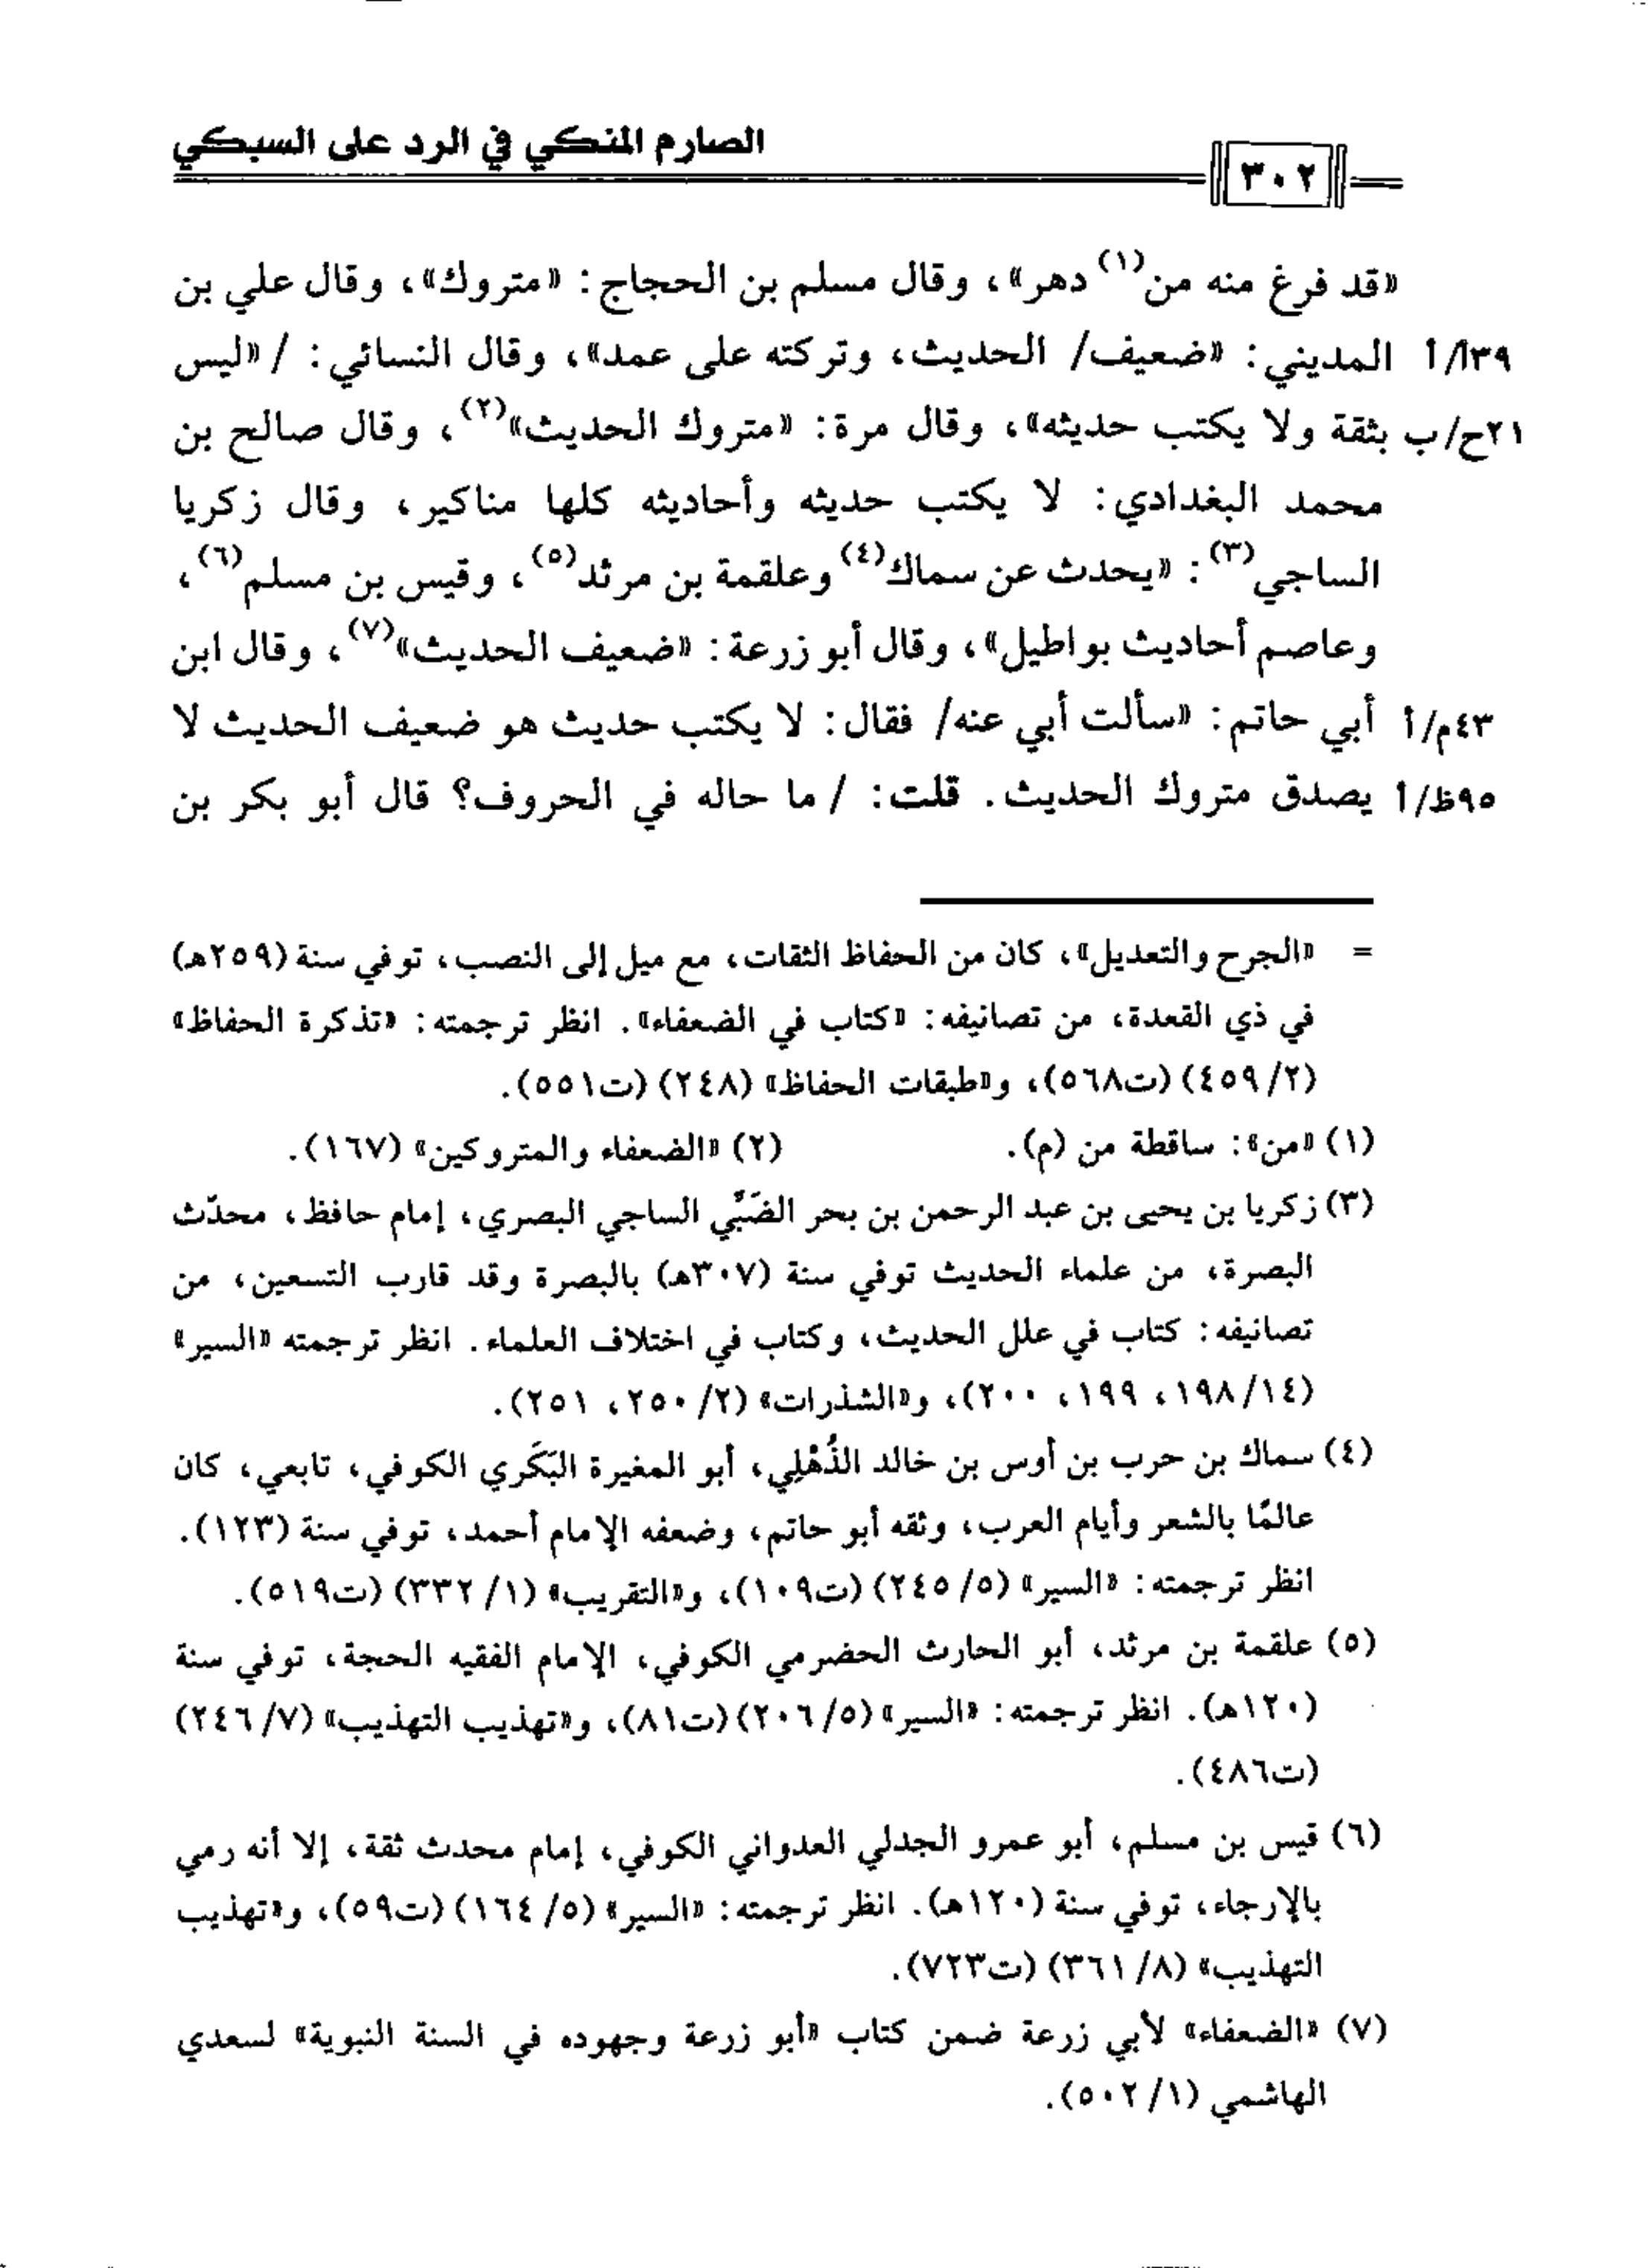 الصارم المنكي في الرد على السبكي
٣٠٢
«قد فرغ منه من(١) دهر»، وقال مسلم بن الحجاج: «متروك»، وقال علي بن
١٣٩/أ المديني: «ضعيف/ الحديث، وتركته على عمد»، وقال النسائي: / «ليس
٢١ح/ب بثقة ولا يكتب حديثه»، وقال مرة: «متروك الحديث»(٢)، وقال صالح بن
محمد البغدادي: لا يكتب حديثه وأحاديثه كلها مناكير، وقال زكريا
الساجي(٣): «يحدث عن سماك(٤) وعلقمة بن مرثد(٥)، وقيس بن مسلم(٦)،
وعاصم أحاديث بواطيل»، وقال أبو زرعة: «ضعيف الحديث»(٧)، وقال ابن
٤٣م/أ أبي حاتم: «سألت أبي عنه/ فقال: لا يكتب حديث هو ضعيف الحديث لا
٩٥ظ/أ يصدق متروك الحديث. قلت: / ما حاله في الحروف؟ قال أبو بكر بن
= «الجرح والتعديل»، كان من الحفاظ الثقات، مع ميل إلى النصب، توفي سنة (٢٥٩هـ)
في ذي القعدة، من تصانيفه: «كتاب في الضعفاء». انظر ترجمته: «تذكرة الحفاظ»
(٤٥٩/٢) (ت٥٦٨)، و«طبقات الحفاظ» (٢٤٨) (ت٥٥١).
(١) «من»: ساقطة من (م). (٢) «الضعفاء والمتروكين» (١٦٧).
(٣) زكريا بن يحيى بن عبد الرحمن بن بحر الضَبِّي الساجي البصري، إمام حافظ، محدّث
البصرة، من علماء الحديث توفي سنة (٣٠٧هـ) بالبصرة وقد قارب التسعين، من
تصانيفه: كتاب في علل الحديث، وكتاب في اختلاف العلماء. انظر ترجمته «السير»
(١٩٨/١٤، ١٩٩، ٢٠٠)، و«الشذرات» (٢٥٠/٢، ٢٥١).
(٤) سماك بن حرب بن أوس بن خالد الذُّهْلِي، أبو المغيرة البَكَري الكوفي، تابعي، كان
عالمًا بالشعر وأيام العرب، وثقه أبو حاتم، وضعفه الإمام أحمد، توفي سنة (١٢٣).
انظر ترجمته: «السير» (٢٤٥/٥) (ت١٠٩)، و«التقريب» (٣٣٢/١) (ت٥١٩).
(٥) علقمة بن مرثد، أبو الحارث الحضرمي الكوفي، الإمام الفقيه الحجة، توفي سنة
(١٢٠هـ). انظر ترجمته: «السير» (٢٠٦/٥) (ت٨١)، و«تهذيب التهذيب» (٢٤٦/٧)
(ت٤٨٦).
(٦) قيس بن مسلم، أبو عمرو الجدلي العدواني الكوفي، إمام محدث ثقة، إلا أنه رمي
بالإرجاء، توفي سنة (١٢٠هـ). انظر ترجمته: «السير» (١٦٤/٥) (ت٥٩)، و«تهذيب
التهذيب» (٣٦١/٨) (ت٧٢٣).
(٧) «الضعفاء» لأبي زرعة ضمن كتاب «أبو زرعة وجهوده في السنة النبوية» لسعدي
الهاشمي (٥٠٢/١).